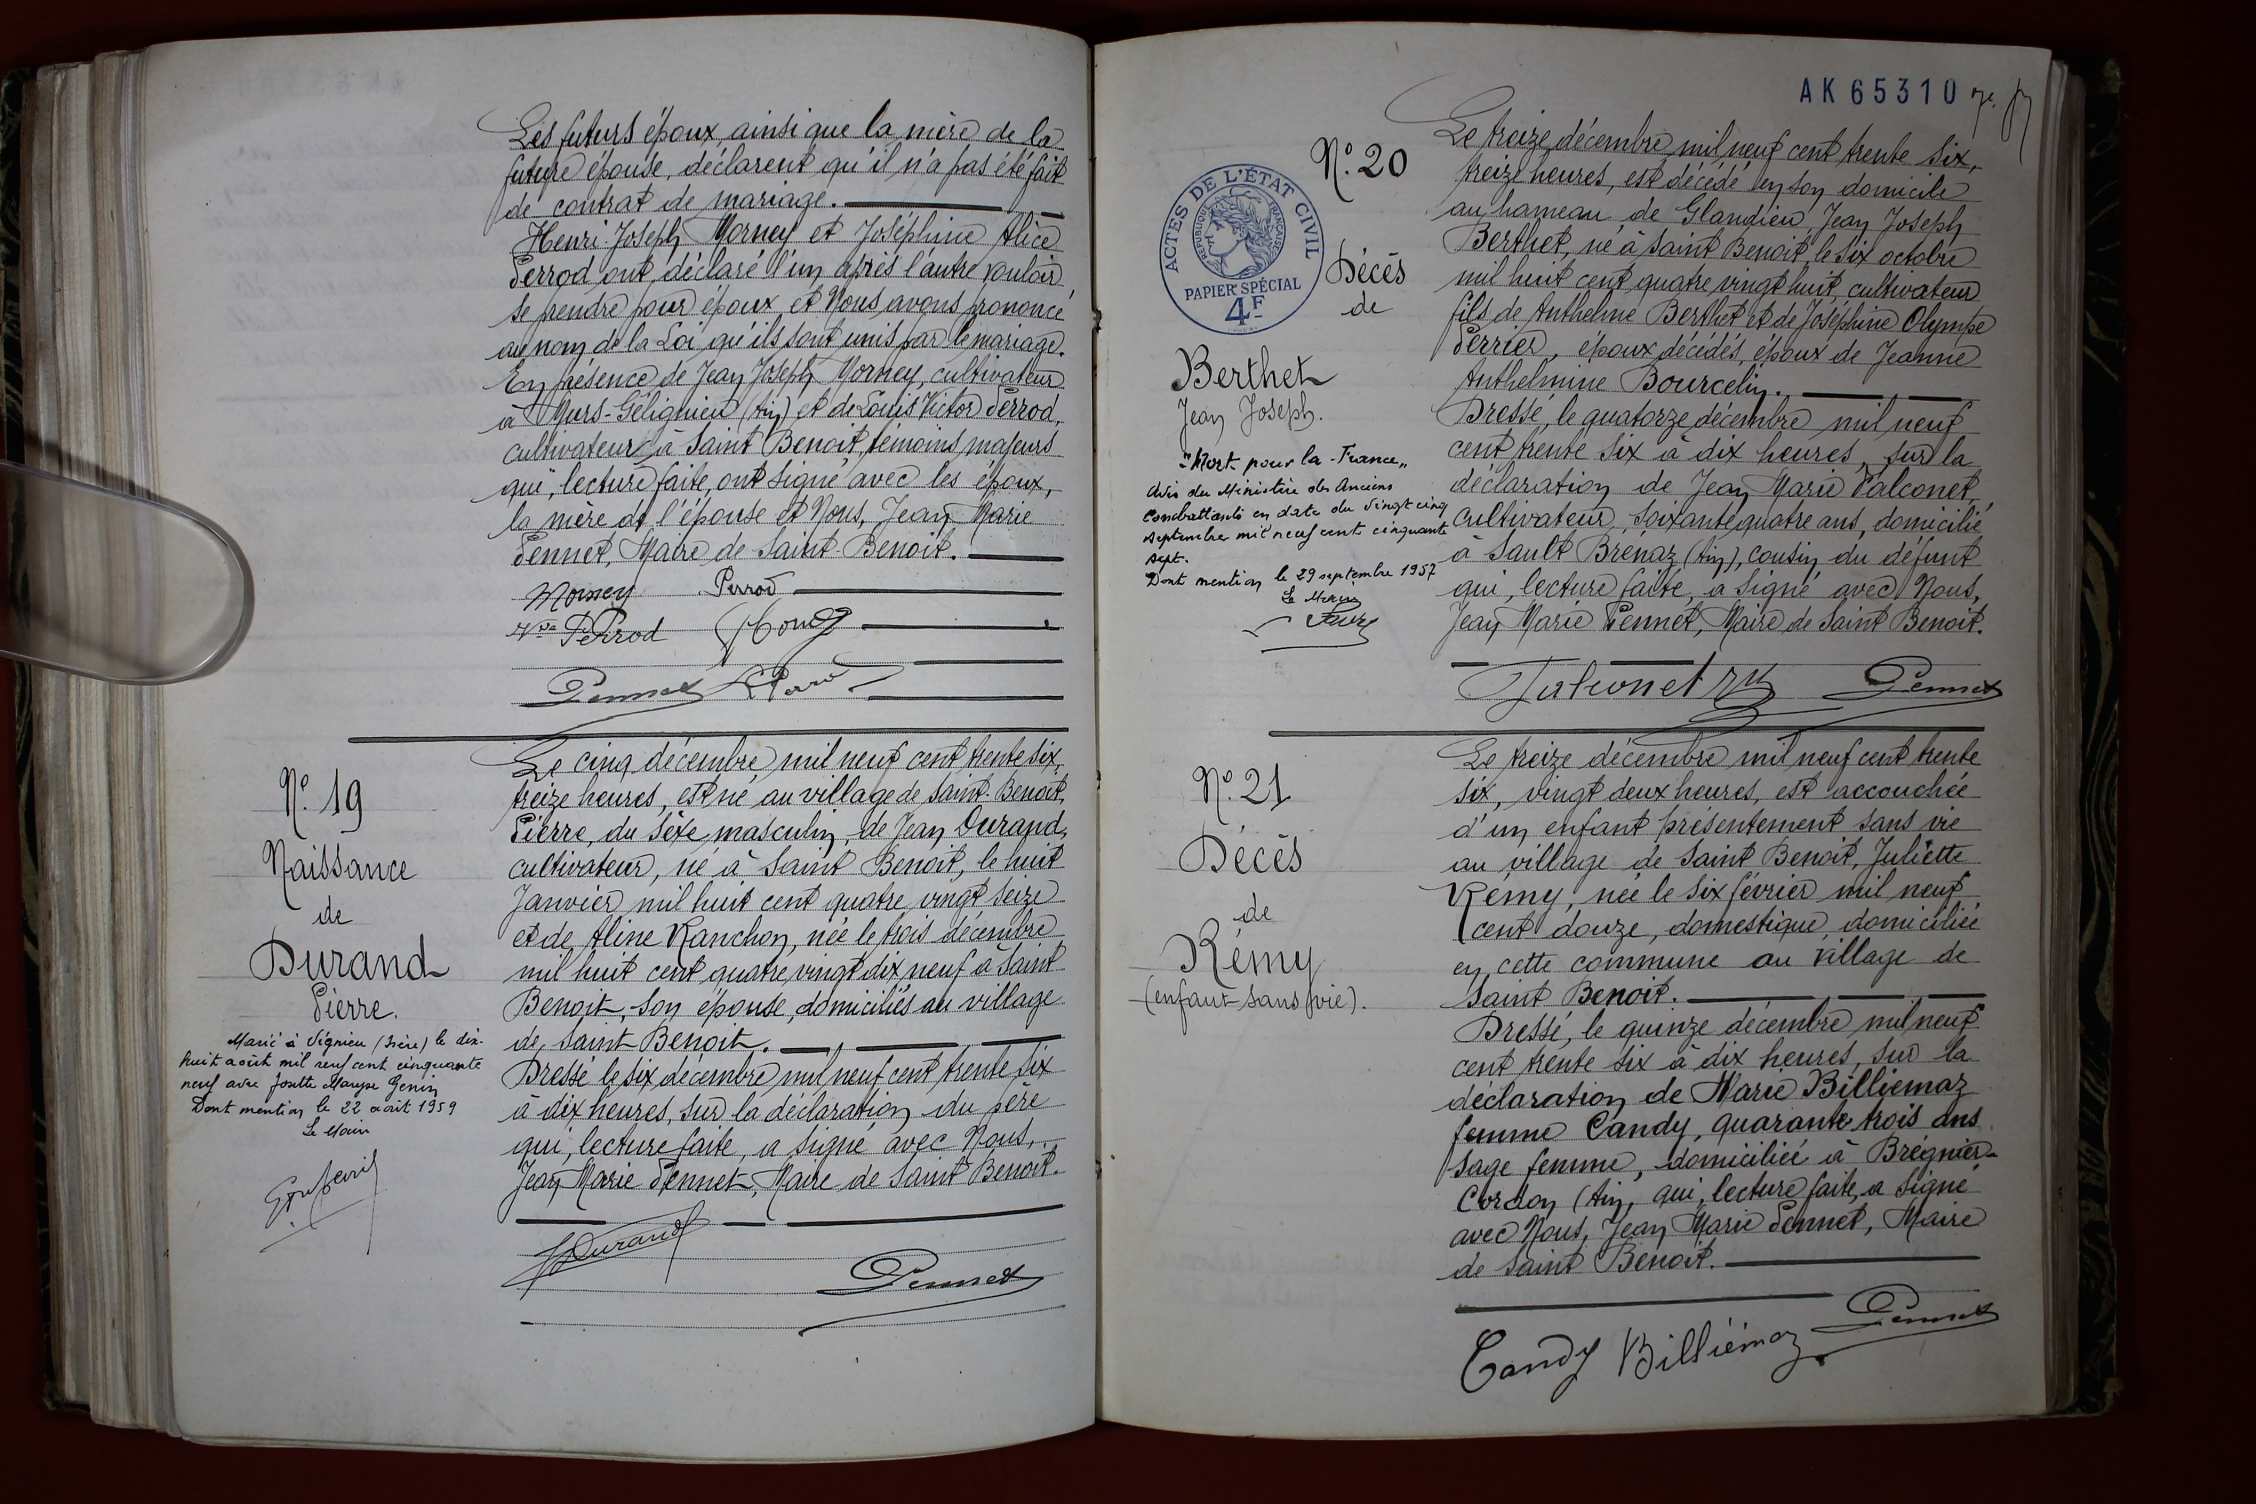 Les futurs époux, ainsi que la mère de la
future épouse, déclarent qu'il n'a pas été fait
de contrat de mariage.
Henri Joseph Morney et Joséphine Alice
Perrod ont déclaré l'un après l'autre vouloir
se prendre pour époux et Nous avons prononcé
au nom de la Loi qu'ils sont unis par le mariage.
En présence de Jean Joseph Morney, cultivateur
à Murs-Gélignieu (Ain) et de Louis Victor Perrod,
cultivateur à Saint Benoit, témoins majeurs
qui, lecture faite, ont signé avec les époux,
la mère de l'épouse et Nous, Jean Marie
Pennet, Maire de Saint-Benoit.
Morney Perrod
Vve Perrod
Pennet Perrod
N° 19
Naissance
de
Durand
Pierre.
Marié à Vignieu (Isère) le dix-
huit août mil neuf cent cinquante
neuf avec Josette Maryse Genin
Dont mention le 22 août 1959
Le Maire
Le cinq décembre mil neuf cent trente six,
treize heures, est né au village de Saint-Benoit,
Pierre, du sexe masculin, de Jean Durand,
cultivateur, né à Saint Benoit, le huit
Janvier mil huit cent quatre vingt seize
et de Aline Ranchon, née le trois décembre
mil huit cent quatre vingt dix neuf à Saint
Benoit, son épouse, domiciliés au village
de Saint-Benoit.
Dressé le six décembre mil neuf cent trente six
à dix heures, sur la déclaration du père
qui, lecture faite, a signé avec Nous,
Jean Marie Pennet, Maire de Saint Benoit.
JDurand
Pennet
AK65310
N° 20
ACTES DE L'ÉTAT CIVIL
RÉPUBLIQUE FRANÇAISE
PAPIER SPÉCIAL
4F
Décès
de
Berthet
Jean Joseph.
"Mort pour la France"
Avis du Ministère des Anciens
Combattants en date du vingt cinq
septembre mil neuf cent cinquante
sept.
Dont mention le 29 septembre 1957
Le Maire
Le treize décembre mil neuf cent trente six,
treize heures, est décédé en son domicile
au hameau de Glandieu, Jean Joseph
Berthet, né à Saint Benoit, le six octobre
mil huit cent quatre vingt huit, cultivateur
fils de Anthelme Berthet et de Joséphine Olympe
Perrier, époux décédés, époux de Jeanne
Anthelmine Bourcelin.
Dressé, le quatorze décembre mil neuf
cent trente six à dix heures, sur la
déclaration de Jean Marie Falconet,
cultivateur, soixante quatre ans, domicilié
à Sault Brénaz (Ain), cousin du défunt
qui, lecture faite, a signé avec Nous,
Jean Marie Pennet, Maire de Saint Benoit.
Falconet Pennet
N° 21
Décès
de
Rémy
(enfant sans vie).
Le treize décembre mil neuf cent trente
six, vingt deux heures, est accouchée
d'un enfant présentement sans vie
au village de Saint Benoit, Juliette
Rémy, née le six février mil neuf
cent douze, domestique, domiciliée
en cette commune au village de
Saint Benoit.
Dressé, le quinze décembre mil neuf
cent trente six à dix heures, sur la
déclaration de Marie Billiemaz
femme Candy, quarante trois ans
sage femme, domiciliée à Brégnier-
Cordon (Ain, qui, lecture faite, a signé
avec Nous, Jean Marie Pennet, Maire
de Saint Benoit.
Pennet
Candy Billiémaz